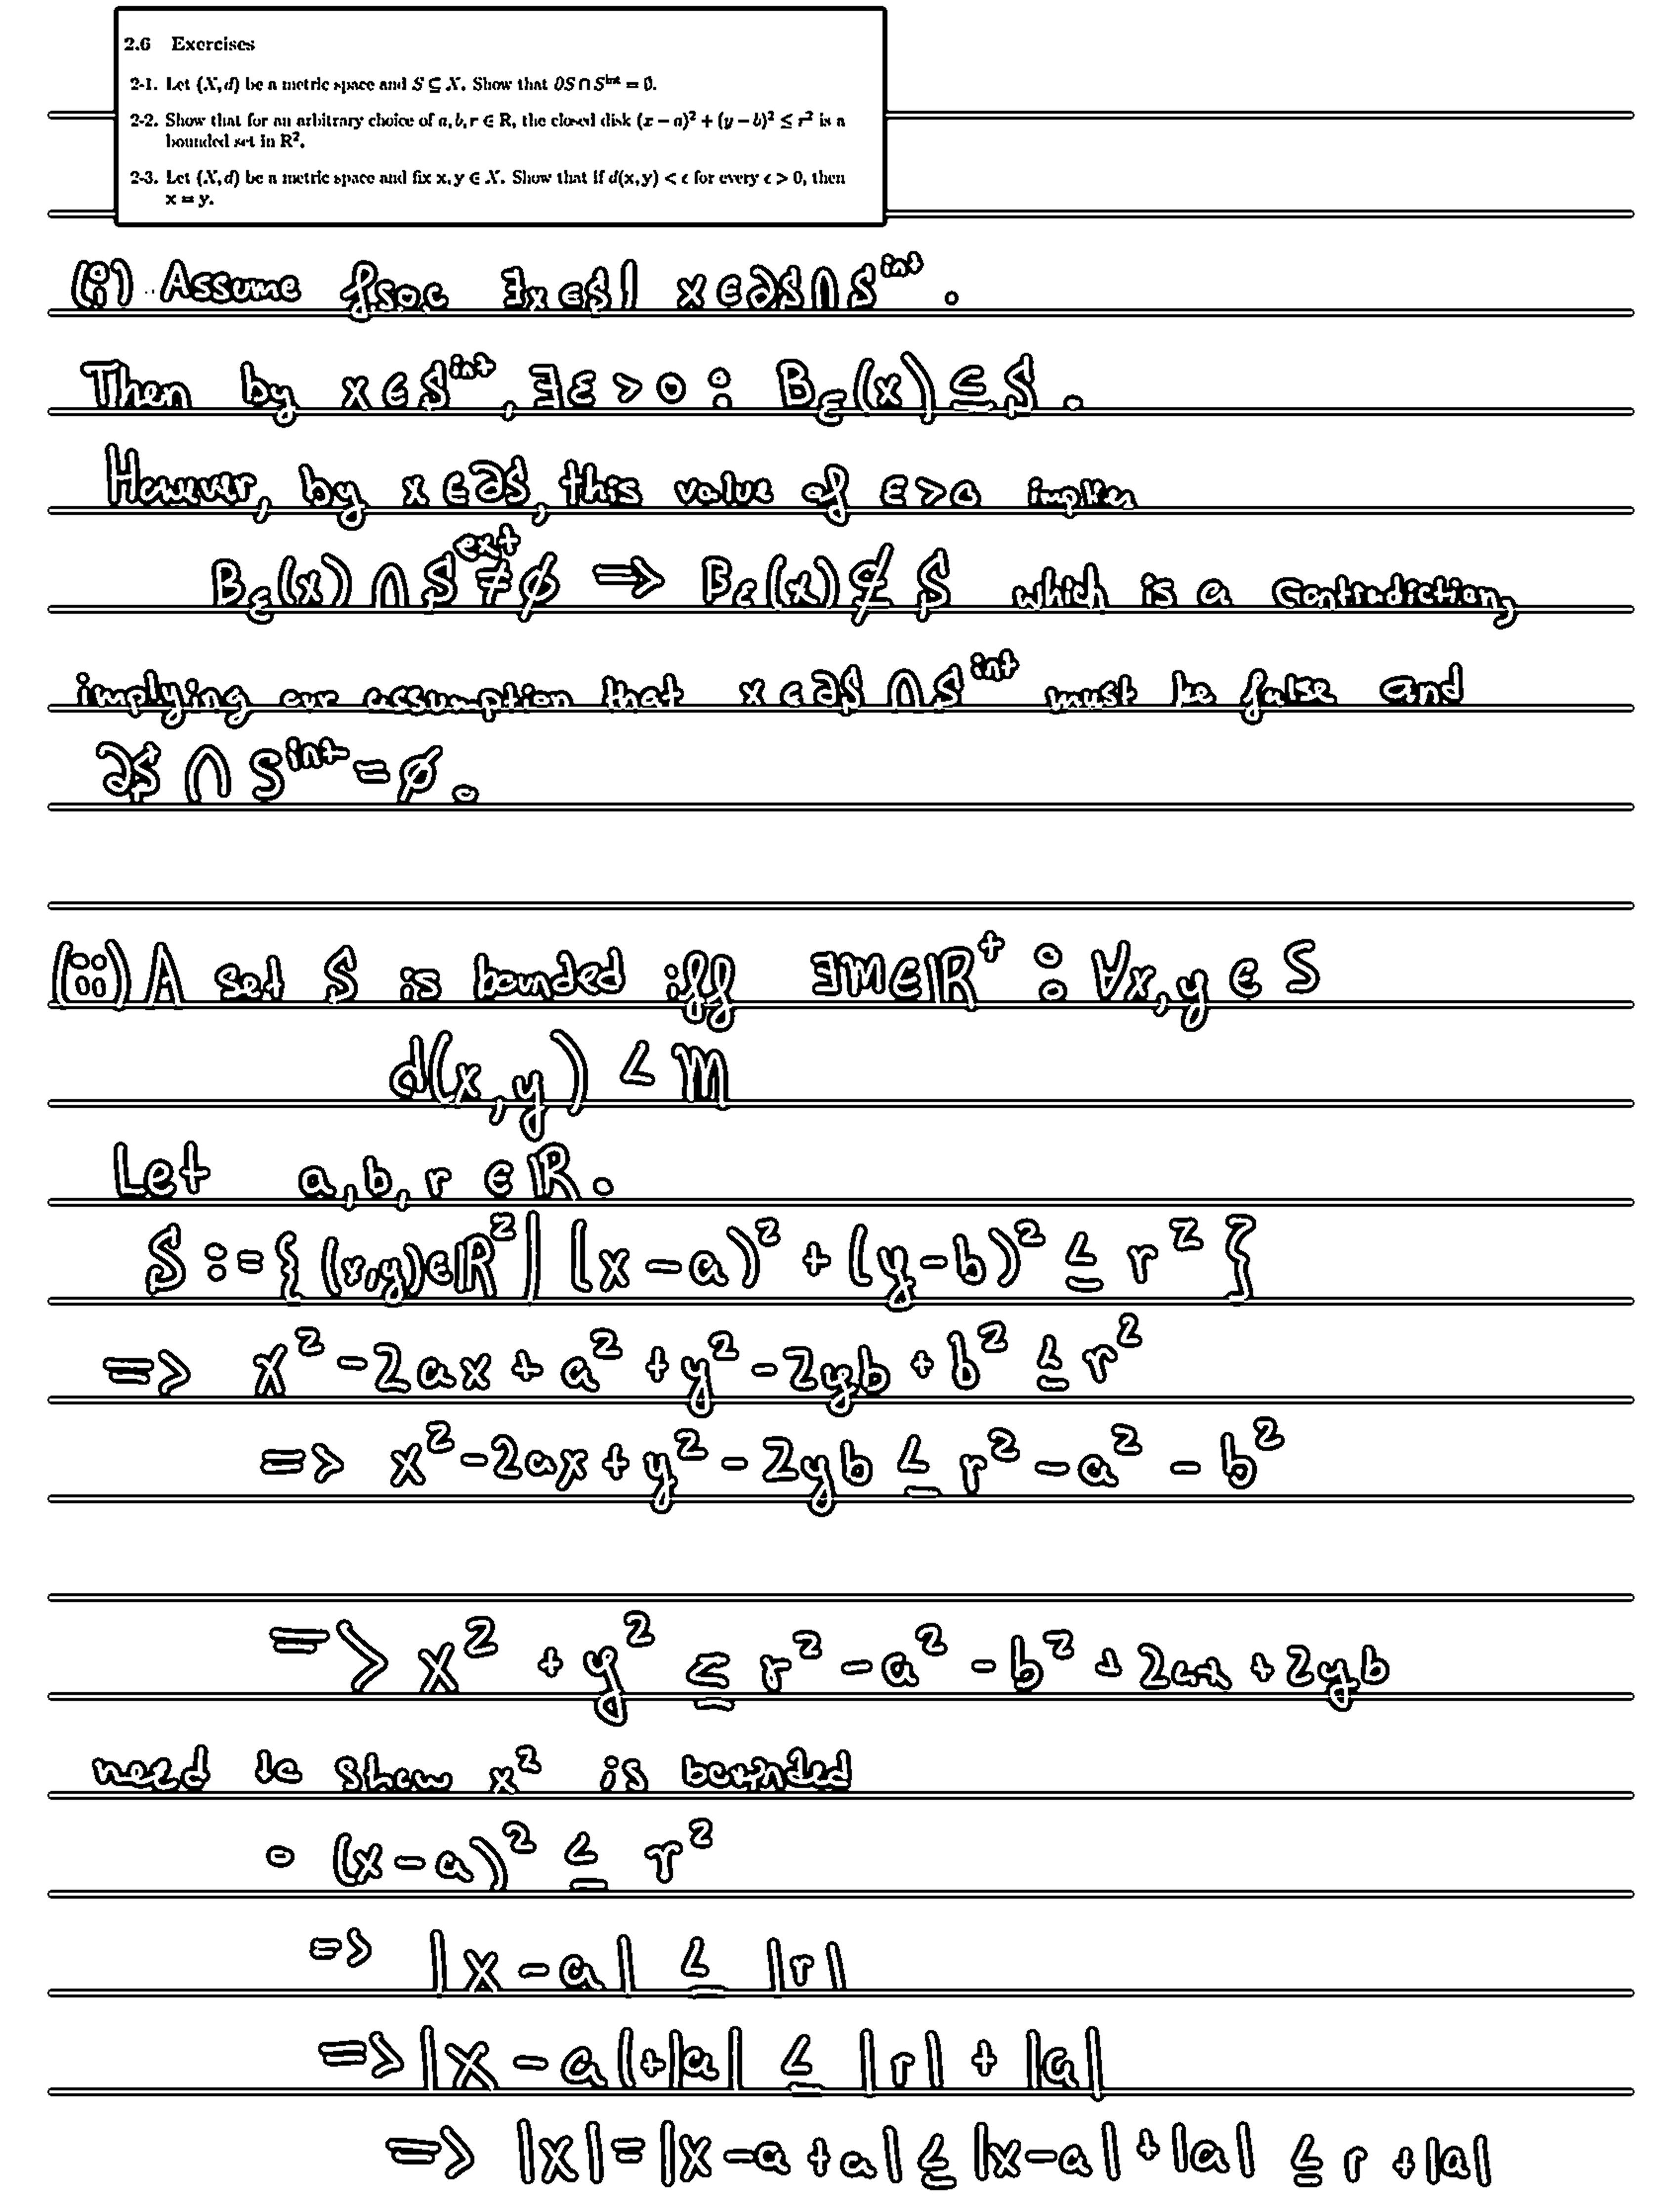 2.6 Exercises
2-1. Let (X, d) be a metric space and S ⊆ X. Show that ∂S ∩ S^int = ∅.
2-2. Show that for an arbitrary choice of a, b, r ∈ R, the closed disk (x − a)² + (y − b)² ≤ r² is a
bounded set in R².
2-3. Let (X, d) be a metric space and fix x, y ∈ X. Show that if d(x, y) < ε for every ε > 0, then
x = y.
(i) Assume fsoc ∃x∈S | x∈∂S∩S^int.
Then by x∈S^int, ∃ε>0 : B_ε(x) ⊆ S.
However, by x∈∂S, this value of ε>0 implies
B_ε(x) ∩ S^ext ≠ ∅ ⇒ B_ε(x) ⊈ S which is a contradiction,
implying our assumption that x∈∂S ∩ S^int must be false and
∂S ∩ S^int = ∅.
(ii) A set S is bounded iff ∃M∈ℝ⁺ : ∀x,y ∈ S
d(x,y) < M
Let a,b,r ∈ ℝ.
S := { (x,y)∈ℝ² | (x-a)² + (y-b)² ≤ r² }
=> x² - 2ax + a² + y² - 2yb + b² ≤ r²
=> x² - 2ax + y² - 2yb ≤ r² - a² - b²
=> x² + y² ≤ r² - a² - b² + 2ax + 2yb
need to show x² is bounded
∘ (x-a)² ≤ r²
=> |x-a| ≤ |r|
=> |x-a|+|a| ≤ |r| + |a|
=> |x| = |x-a+a| ≤ |x-a|+|a| ≤ r + |a|